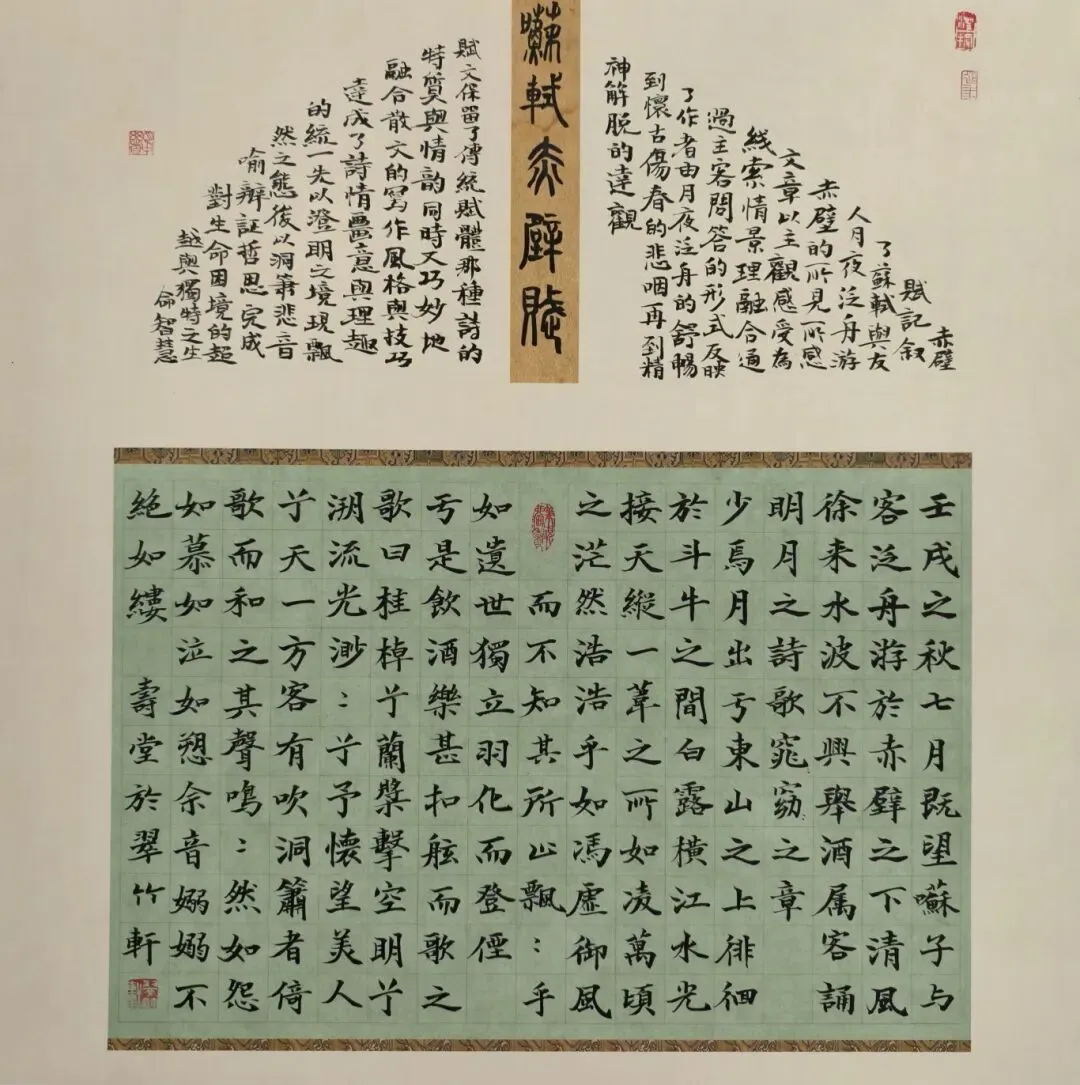 蘇軾赤壁賦
赤壁
賦記叙
了蘇軾與友
人月夜泛舟游
赤壁的所見所感
文章以主觀感受為
线索情景理融合通
過主客問答的形式反映
了作者由月夜泛舟的舒暢
到懷古傷春的悲咽再到精
神解脱的達觀
賦文保留了傳統賦體那種詩的
特質與情韵同時又巧妙地
融合散文的寫作風格與技巧
達成了詩情畫意與理趣
的統一先以澄明之境現飄
然之態後以洞簫悲音
喻辯証哲思完成
對生命困境的超
越與獨特之生
命智慧
壬戌之秋七月既望蘇子与
客泛舟游於赤壁之下清風
徐来水波不興舉酒属客誦
明月之詩歌窕窈之章
少焉月出亏東山之上徘徊
於斗牛之間白露橫江水光
接天縱一葦之所如凌萬頃
之茫然浩浩乎如馮虛御風
而不知其所止飄:乎
如遺世獨立羽化而登僊
亏是飲酒樂甚扣舷而歌之
歌曰桂棹兮蘭槳擊空明兮
溯流光渺:兮予懷望美人
兮天一方客有吹洞簫者倚
歌而和之其聲嗚:然如怨
如慕如泣如愬余音嫋嫋不
絕如縷 壽堂於翠竹軒